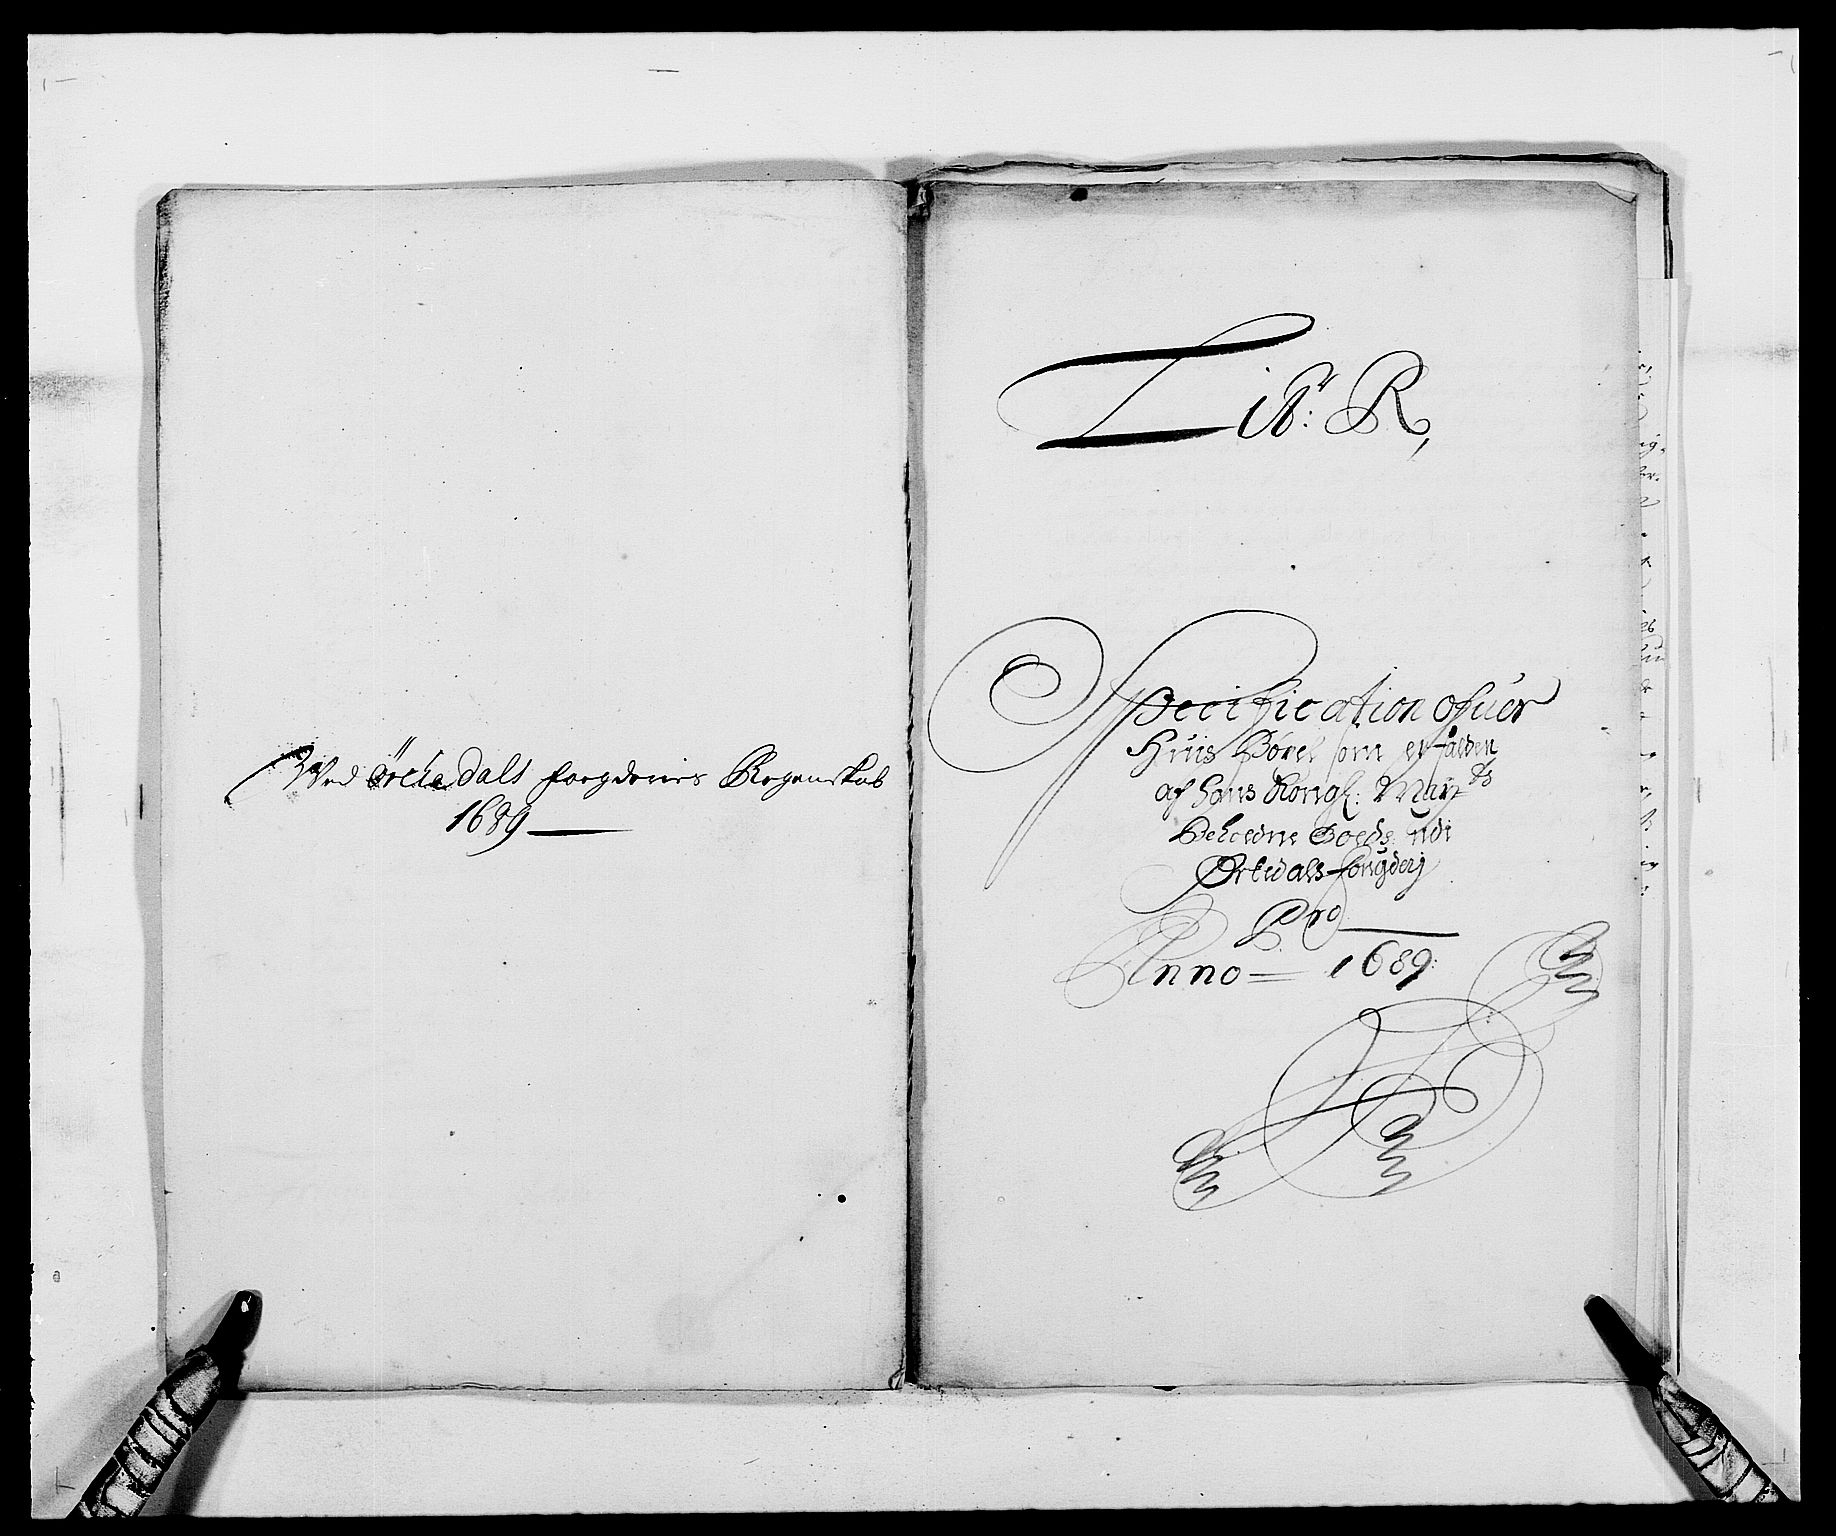 Ved Örckedals fougderies Regenskab
1689
Litr: R,
Specification ofuer
Huis Böxel som er falden
af Hans Kongl: Maÿts
Beholdne Goeds udi
Örkedals fougderj
Pro
Anno 1689: